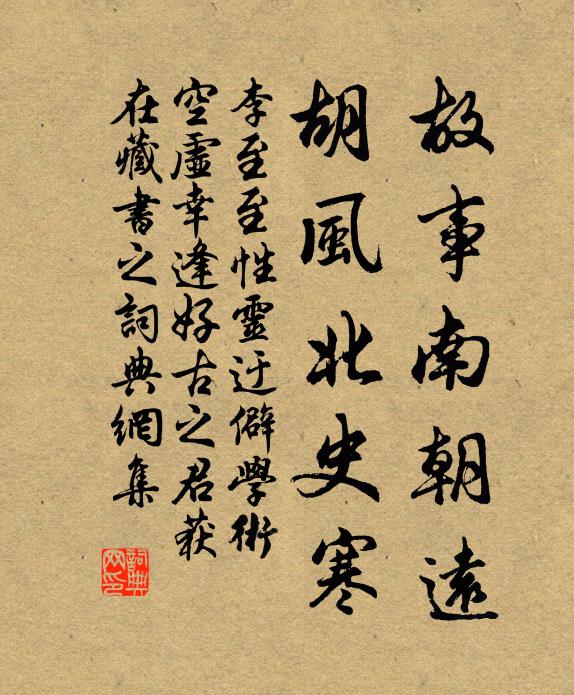 故事南朝遠
胡風北史寒
李至至性靈迂僻學術
空虛幸逢好古之君获
在藏書之詞典網集
詞典网印